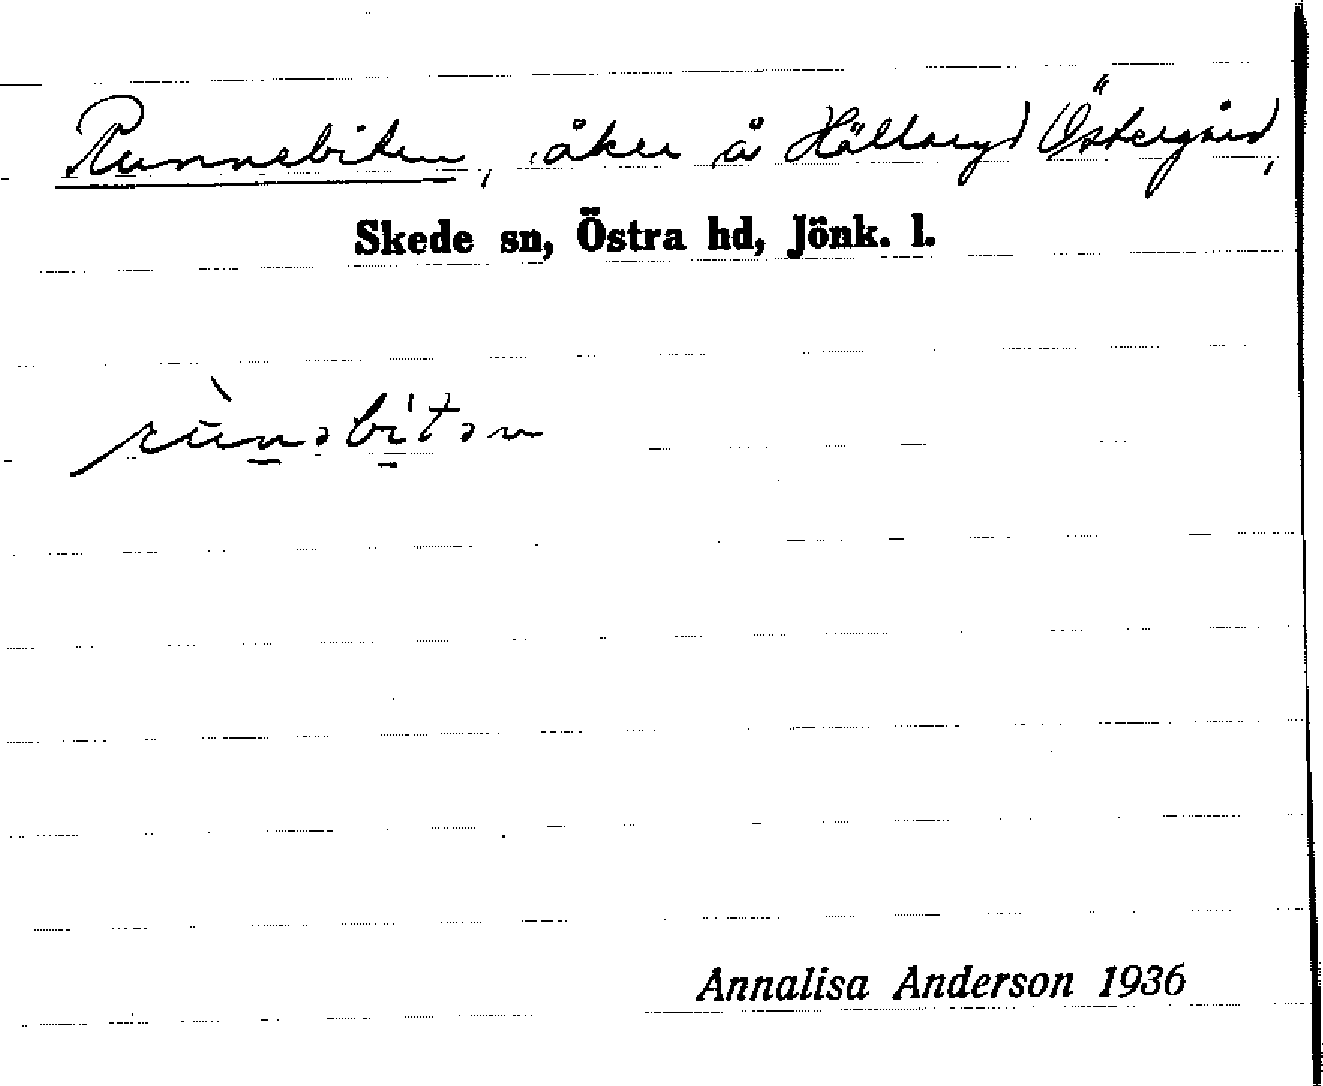 Runnebiten, åker å Hällaryd Östergård,
Skede sn, Östra hd, Jönk. l.
Annalisa Anderson 1936